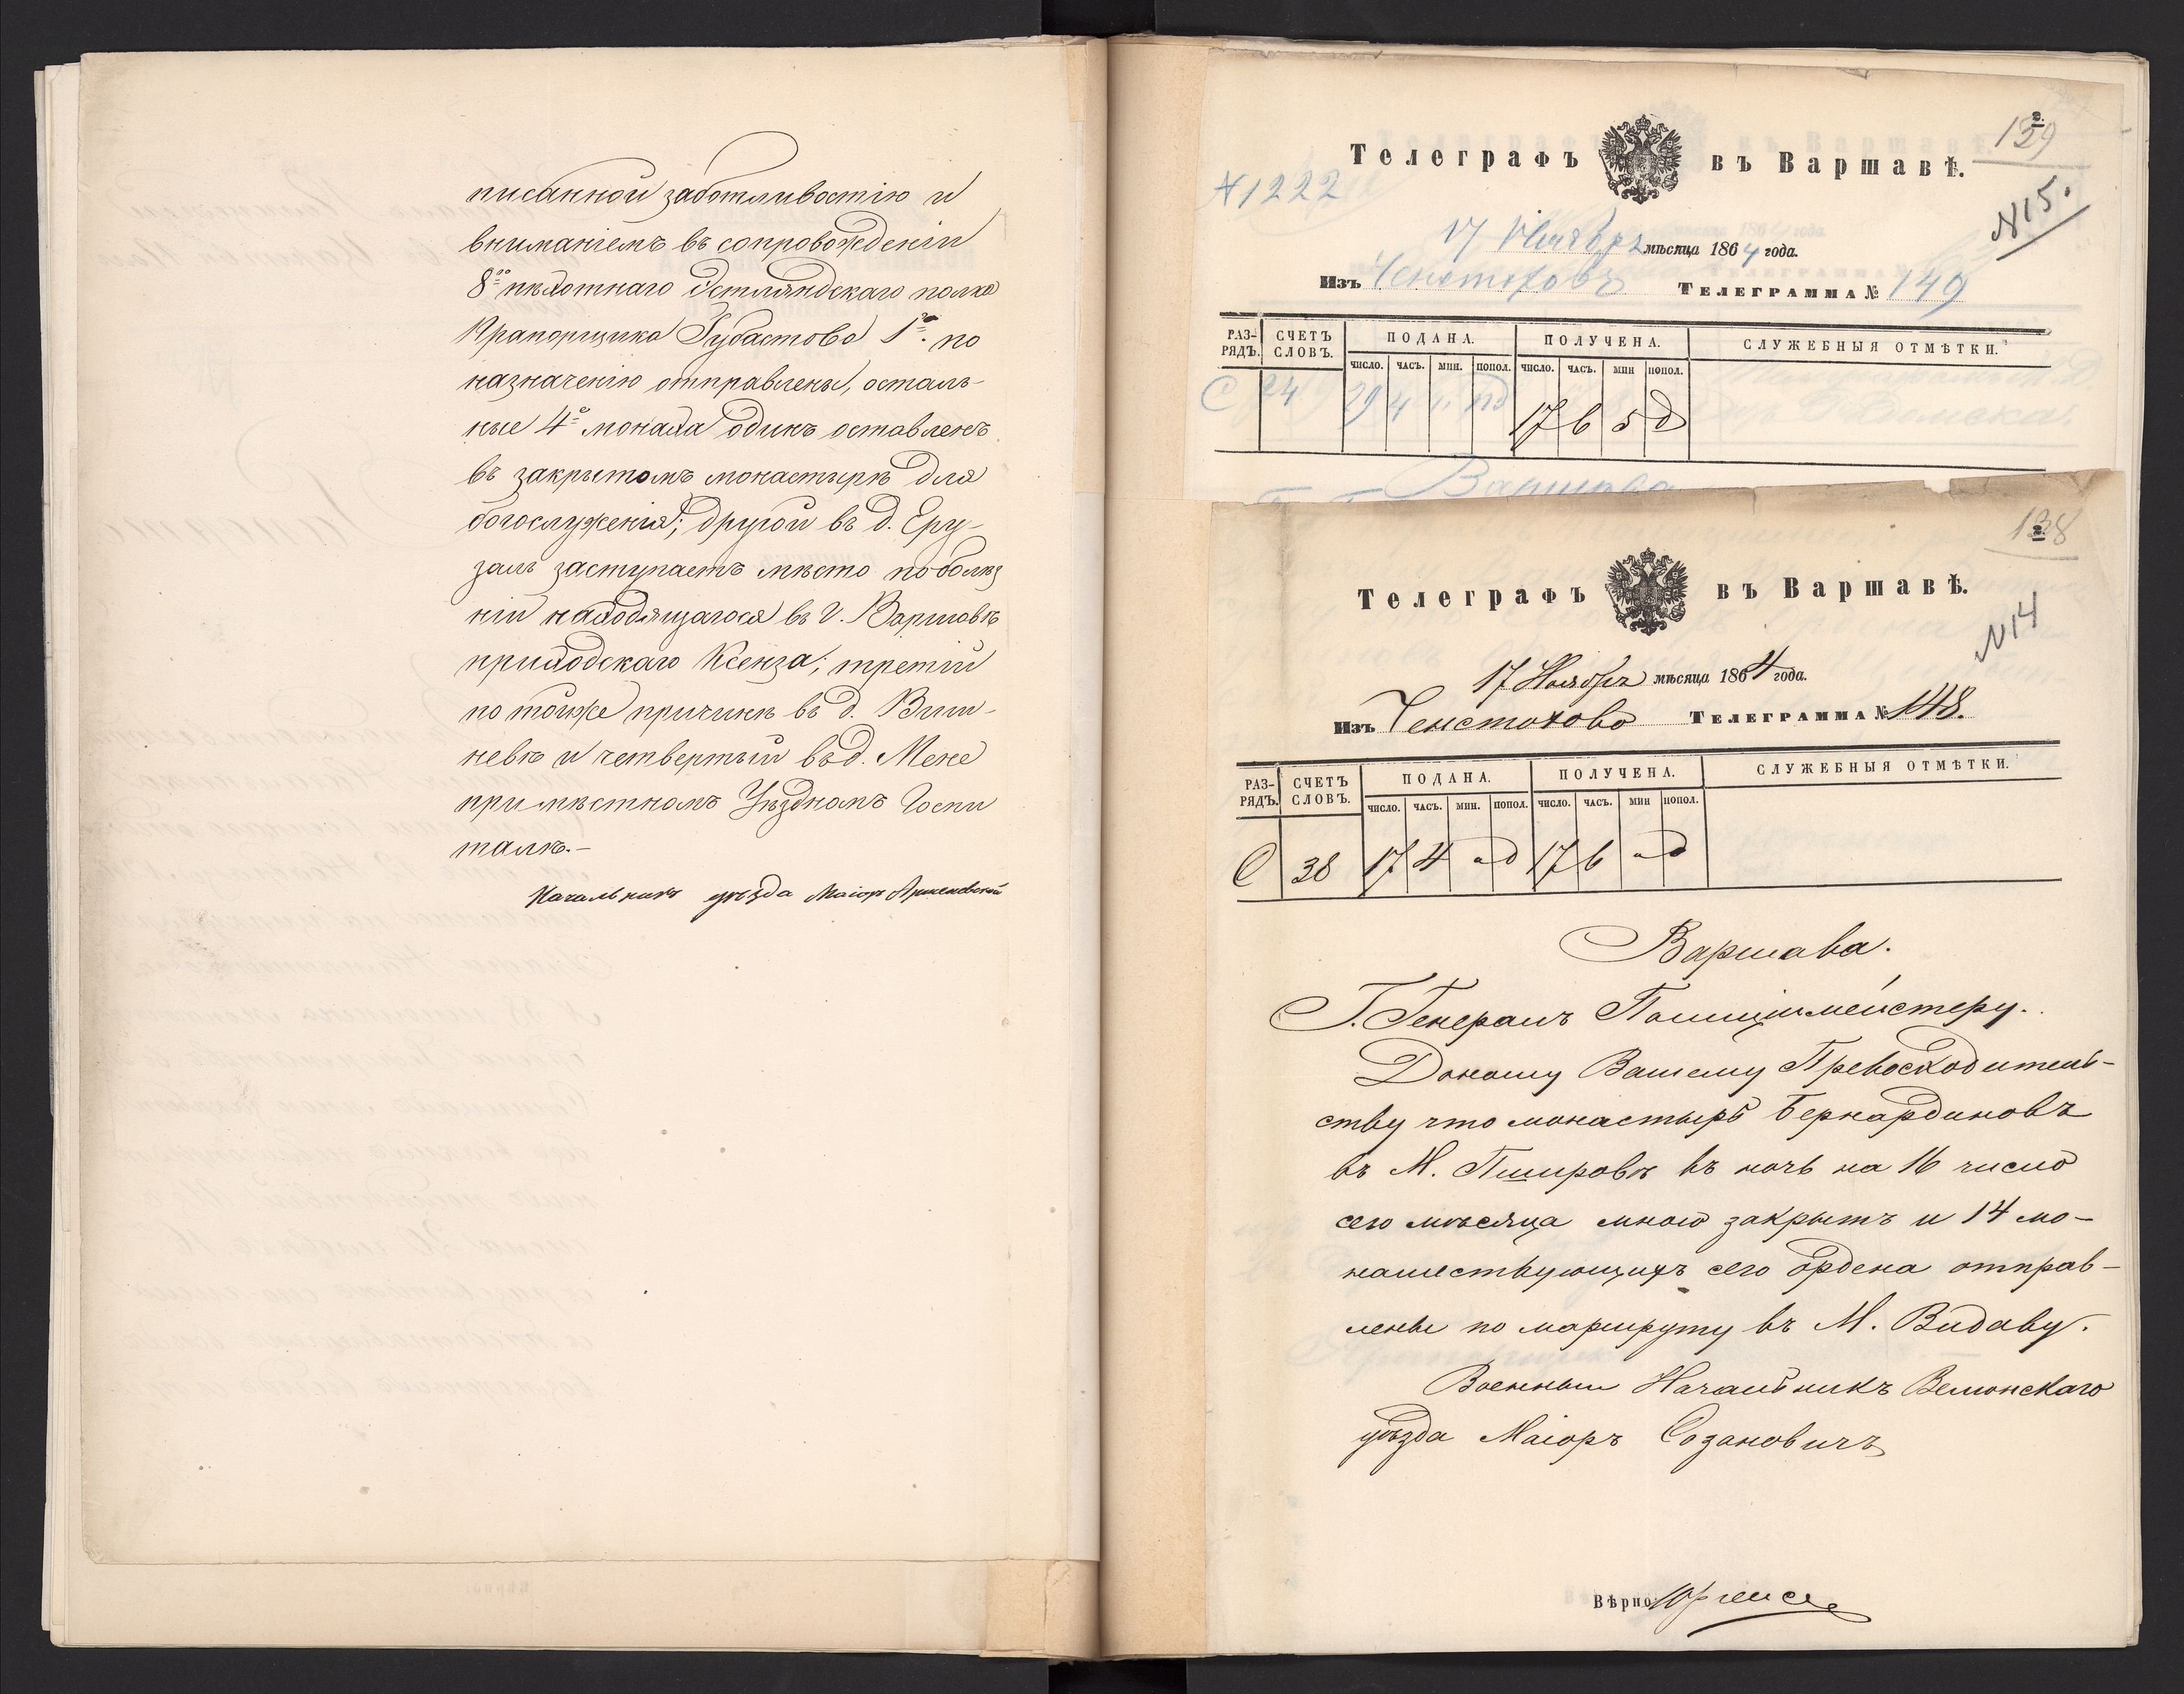 писанной заботливостію и
вниманіемъ въ сопровожденіи
8го пѣхотнаго Эстляндскаго полка
Прапорщика Губастова 1го по
назначенію отправлены, осталь-
ные 4е монаха одинъ оставленъ
въ закрытомъ монастырѣ для
богослуженія; другой въ д. Еру-
залъ заступаетъ мѣсто по болѣз
ніи находящагося въ г. Варшавѣ
приходскаго Ксенза; третій
по тойже причинѣ въ д. Виш-
невѣ и четвертый въ д. Мене
при мѣстномъ Уѣздномъ Госпи
талѣ.-
Начальникъ уѣзда Маіоръ
139
Телеграфъ въ Варшавѣ.
№1222
N15.
17 Ноября мѣсяца 1864 года.
Изъ Ченстохова Телеграмма № 149
РАЗ-РЯДЪ. СЧЕТЪ СЛОВЪ. ПОДАНА. ПОЛУЧЕНА. СЛУЖЕБНЫЯ ОТМѢТКИ.
ЧИСЛО. ЧАСЪ. МИН. ПОПОЛ. ЧИСЛО. ЧАСЪ. МИН ПОПОЛ.
С 24 29 4 пд 17 6 5 д
Варшава
138
Телеграфъ въ Варшавѣ.
N14
17 Ноября мѣсяца 1864 года.
Изъ Ченстохова Телеграмма № 148.
РАЗ-РЯДЪ. СЧЕТЪ СЛОВЪ. ПОДАНА. ПОЛУЧЕНА. СЛУЖЕБНЫЯ ОТМѢТКИ.
ЧИСЛО. ЧАСЪ. МИН. ПОПОЛ. ЧИСЛО. ЧАСЪ. МИН ПОПОЛ.
С 38 17 4 пд 17 6 пд
Варшава.
Г. Генералъ Полицiймейстеру.
Доношу Вашему Превосходитель-
ству что монастырь Бернардиновъ
въ М. Пшировѣ въ ночь на 16 число
сего мѣсяца мною закрытъ и 14 мо-
нашествующихъ сего ордена отправ-
лены по маршруту въ М. Видаву.
Военный Начальникъ Велюнскаго
уѣзда Маіоръ Созановичъ
Вѣрно: